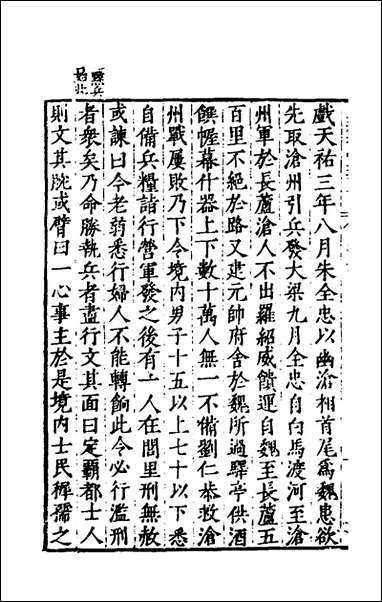 戲天祐三年八月朱全忠以幽滄相首尾爲魏患欲
先取滄州引兵發大梁九月全忠自白馬渡河至滄
州軍於長蘆滄人不出羅紹威饋運自魏至長蘆五
百里不絶於路又建元帥府舍於魏所過驛亭供酒
饌幄幕什器上下數十萬人無一不備劉仁恭救滄
州戰屢敗乃下令境内男子十五以上七十以下悉
自備兵糧詣行營軍發之後有一人在閭里刑無赦
或諫曰今老弱悉行婦人不能轉餉此令必行濫刑
者衆矣乃命勝執兵者盡行文其面曰定霸都士人
則文其腕或臂曰一心事主於是境内士民穉孺之